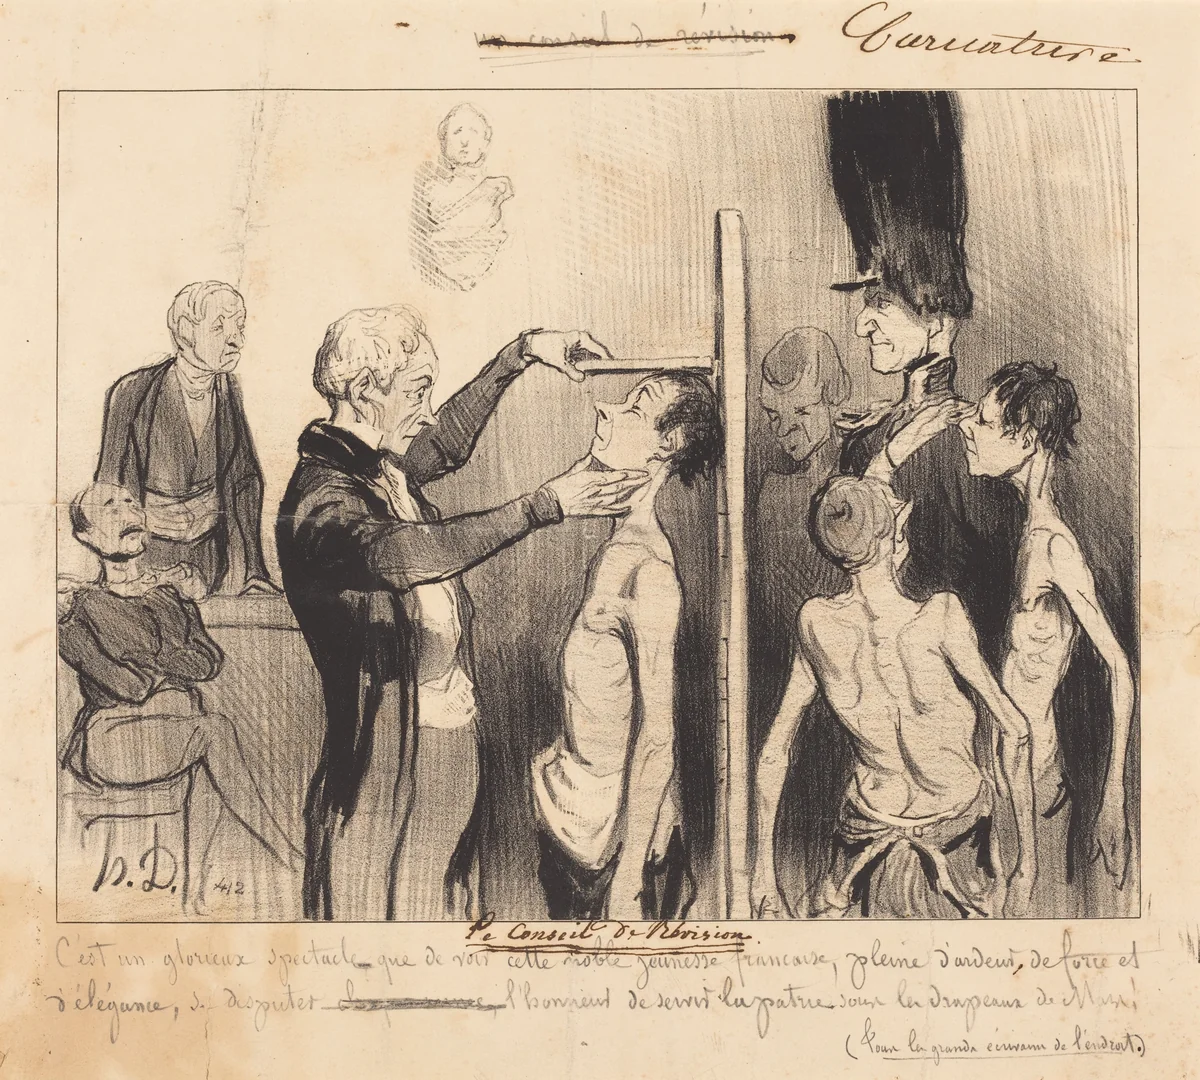 un conseil de révision
Caricature
h.D.
412
Le Conseil de Révision.
C'est un glorieux spectacle que de voir cette noble jeunesse francaise, pleine d'ardeur, de force et
d'élégance, se disputer l'honneur de servir la patrie sous les drapeaux de Mars!
(Tous les grands écrivains de l'endroit.)